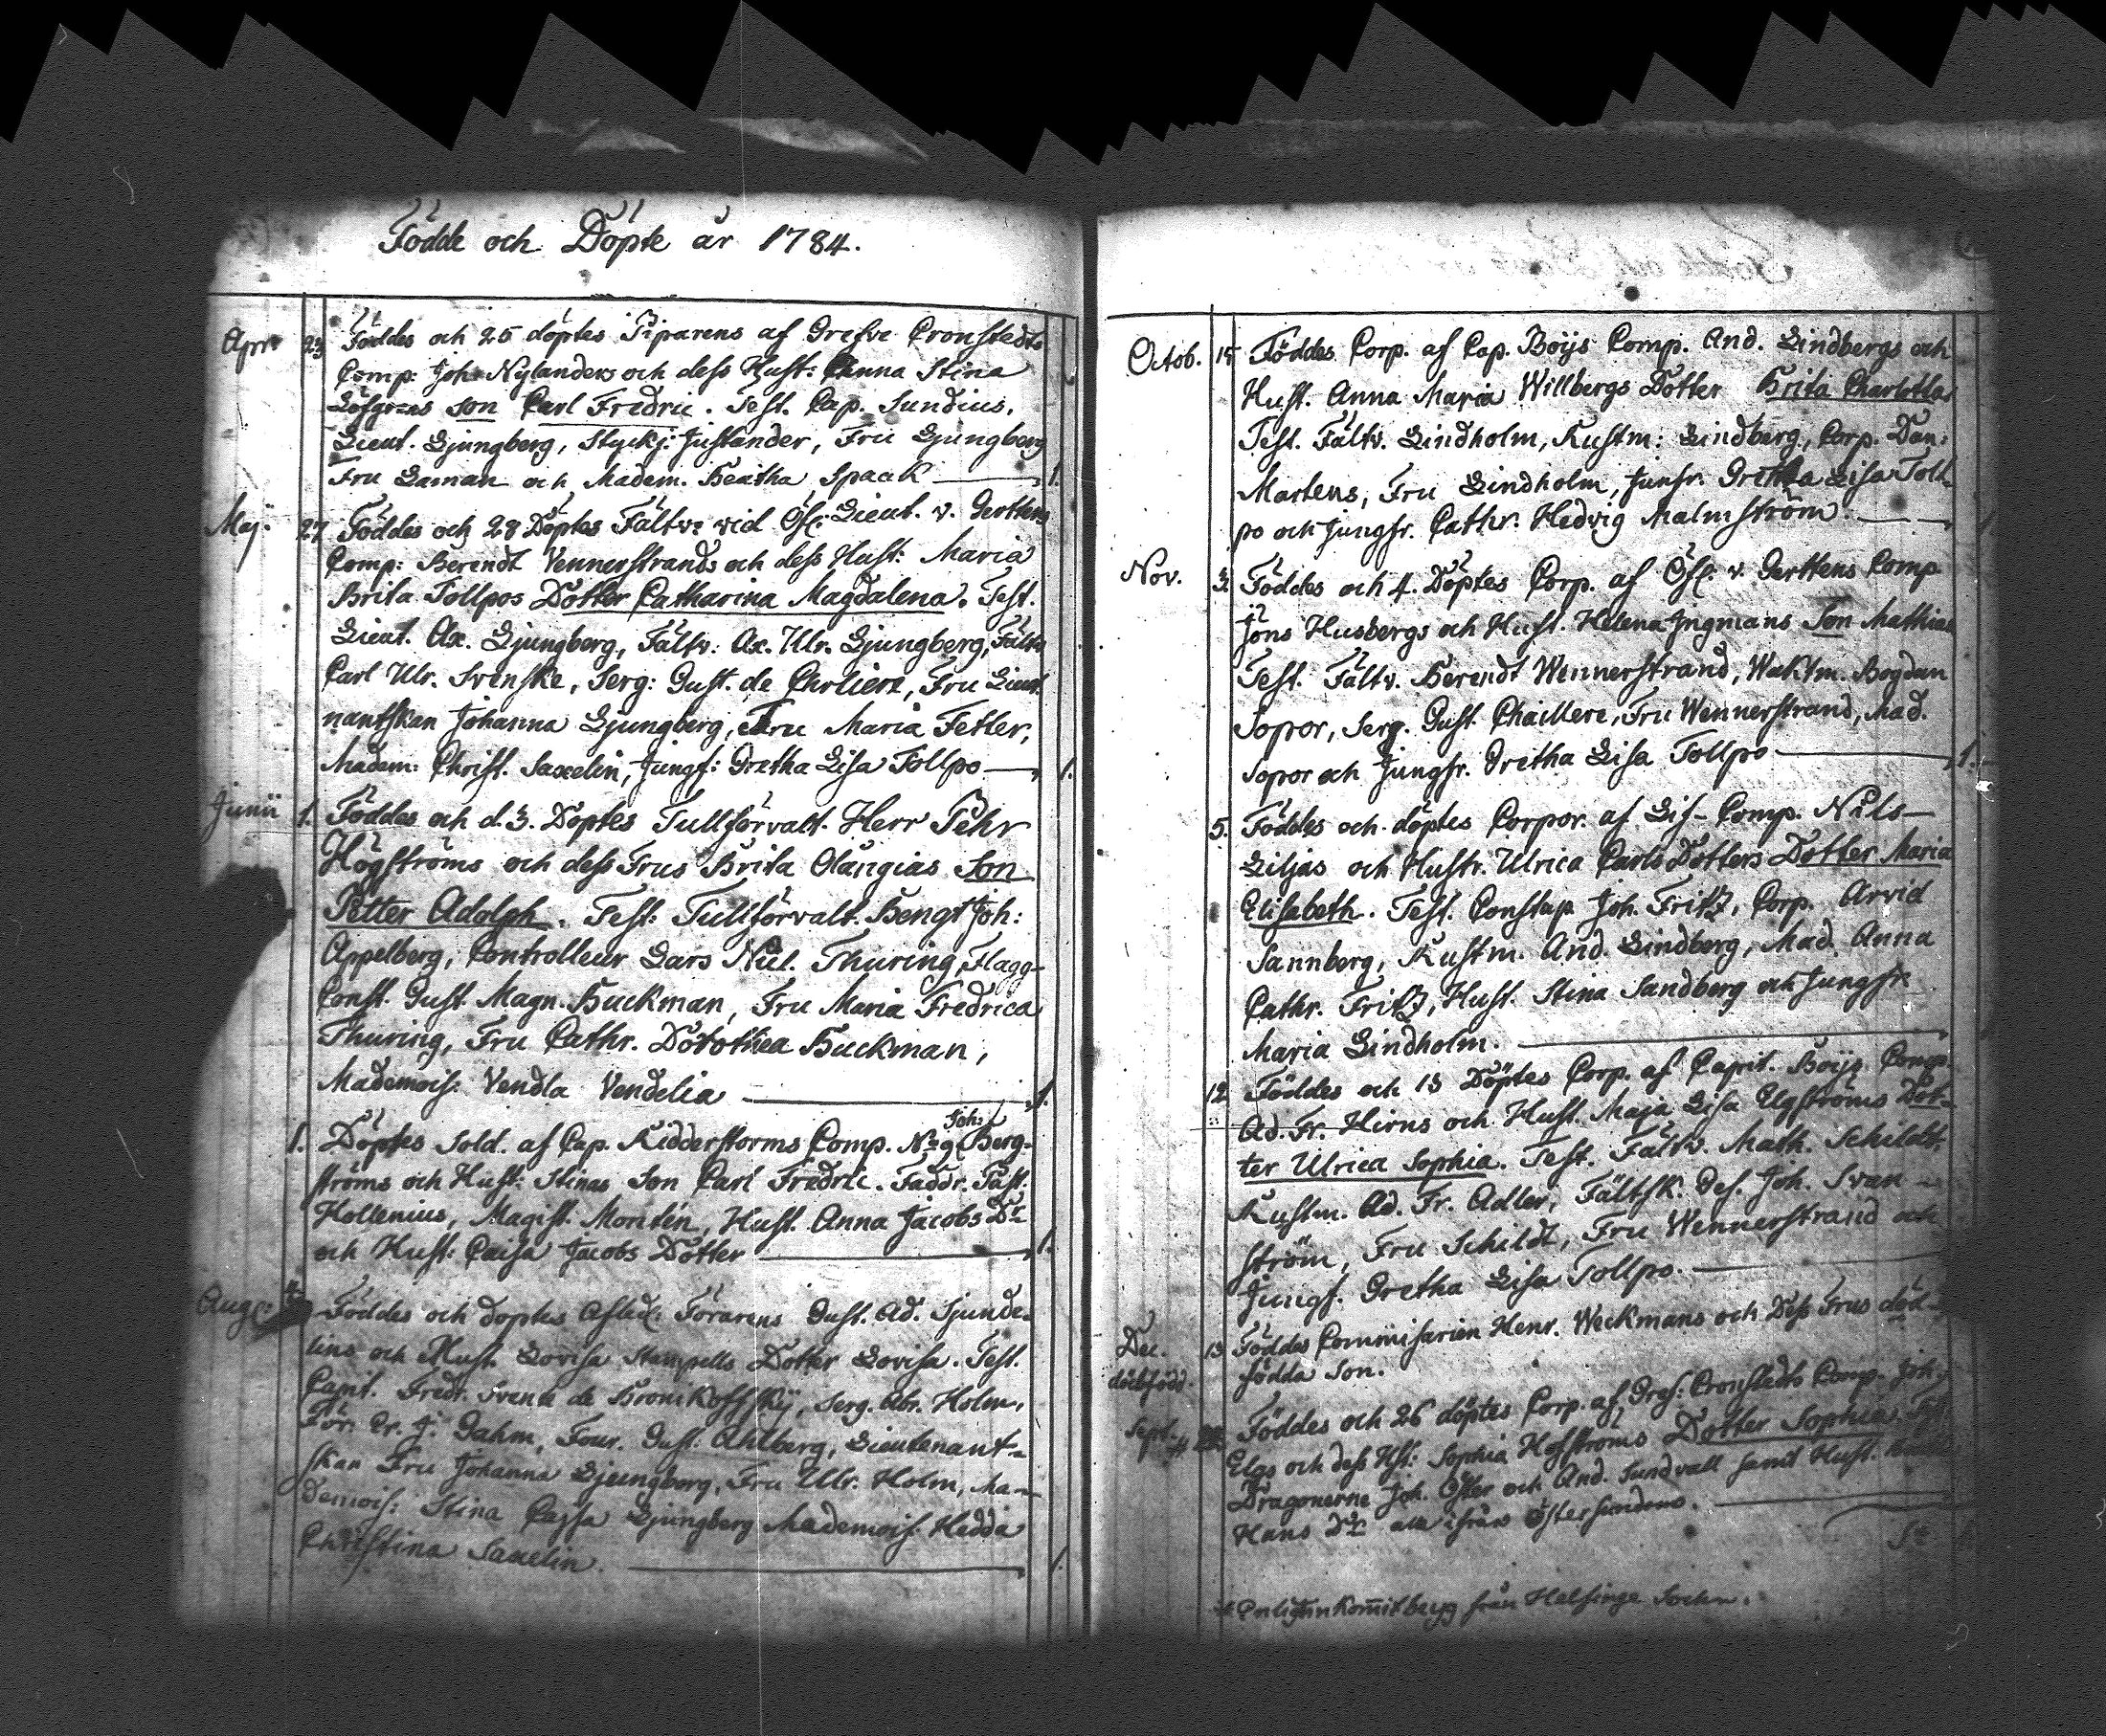 Födde och Döpte år 1784.
Apr. 23 Föddes och 25 döptes Piparens af Grefve Cronstedts
Comp: Joh. Nylanders och dess Hust: Anna Stina
Löfgrens Son Carl Fredric. Test. Cap. Sundius,
Lieut. Ljungberg, Styckj. Justander, Fru Ljungberg
Fru Laman och Madem. Beatha Spaak 1.
Maj. 27 Föddes och 28 Döptes Fältv: vid Öfl. Lieut. v. Gerttens
Comp: Berendt Vennerstrands och dess Hust: Maria
Brita Tollpos Dotter Catharina Magdalena. Test.
Lieut. Ax. Ljungberg, Fältv: Ax. Ulr. Ljungberg, Fältv.
Carl Ulr. Svenske, Serg: Gust. de Fru Lieut.
nantskan Johanna Ljungberg, Fru Maria Fetler,
Madem: Christ. Saxelin, Jungf: Gretha Lisa Tollpo 1.
Junii 1. Föddes och d. 3. Döptes Tullförvalt. Herr Pehr
Högströms och dess Frus Brita Olångias Son
Petter Adolph. Test: Tullförvalt. Bengt Joh:
Appelberg, Controlleur Lars Nül. Thuring, Flagg-
Const. Gust. Magn. Buckman, Fru Maria Fredrica
Thuring, Fru Cathr. Dorothea Buckman,
Mademois: Vendla Vendelia 1.
Joh:
1. Döptes Sold. af Cap. Ridderstorms Comp. No 9 Berg-
ströms och Hust: Stinas Son Carl Fredric. Faddr. Past.
Hollenius, Magist. Morttén, Hust. Anna Jacobs Dr
och Hust: Caisa Jacobs Dotter 1.
Föddes och döptes Förarens Gust. Ad. Sjunde-
lins och Hust. Lovisa Dotter Lovisa. Test.
Capit. Fredr. Svenh de Bronikoffsky, Serg. Abr. Holm,
För. Er. J. Dahm, Four. Gust. Ahlberg, Lieutenant-
skan Fru Johanna Ljungberg, Fru Ulr. Holm, Ma-
demois: Stina Cajsa Ljungberg Mademois. Hedda
Christina Saxelin. 1.
Octob. 15 Föddes Corp. af Cap. Böijs Comp. And. Lindbergs och
Hust. Anna Maria Willbergs Dotter Brita Charlotta
Test. Fältv. Lindholm, Rustm: Lindberg, Corp. Dan:
Martens, Fru Lindholm, Junfr. Gretha Lisa Toll-
po och Jungfr. Cathr: Hedvig Malmström.
Nov. 3. Föddes och 4. Döptes Corp. af Öfl. v. Gerttens Comp
Jöns Husbergs och Hust. Helena Ingmans Son Mathias
Test. Fältv. Berendt Wennerstrand, Waktm. Bogdan
Sopor, Serg. Gust. Chaillere, Fru Wennerstrand, Mad.
Sopor och Jungfr. Gretha Lisa Tollpo 1.
5. Föddes och döptes Corpor. af Lif-Comp. Nils
Liljas och Hustr. Ulrica Carls Dotters Dotter Maria
Elisabeth. Test. Constap. Joh. Fritz, Corp. Arvid
Sannberg, Rustm. And. Lindberg, Mad. Anna
Cathr. Fritz, Hust. Stina Sandberg och Jungfr
Maria Lindholm.
12 Föddes och 13 Döptes Corp. af Capit. Böijs Comp.
Ad. Fr. Hirns och Hust. Maja Lisa Elgströms Dot-
ter Ulrica Sophia. Test. Fältv. Math. Schildt,
Rustm. Ad. Fr. Adler, Fältsk. Ges. Joh. Svan-
ström, Fru Schildt, Fru Wennerstrand och
Jungf. Gretha Lisa Tollpo.
Dec. 13 Föddes Commisarien Henr. Weckmans och Dess Frus död-
dödfödd. födda Son.
Sept. Föddes och 26 döptes Corp. af Gref. Cronstedts Comp. Joh.
Elgs och dess Hst: Sophia Hofströms Dotter Sophia. Test.
Dragonerne Joh. Öster och And. Sundvall samt Hust.
Hans Dr ifrån Östersundom.
från Helsinge Sockn.